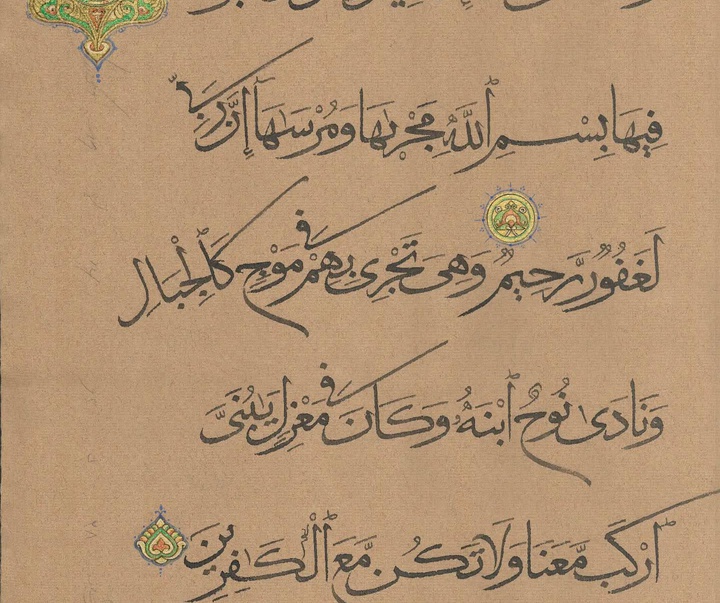 فِيهَا بِسْمِ ٱللَّهِ مَجْرىٰهَا وَمُرْسَىٰهَآ إِنَّ رَبِّى
لَغَفُورٌ رَّحِيمٌ وَهِىَ تَجْرِى بِهِمْ فِى مَوْجٍ كَٱلْجِبَالِ
وَنَادَىٰ نُوحٌ ٱبْنَهُۥ وَكَانَ فِى مَعْزِلٍ يَٰبُنَىَّ
ٱرْكَب مَّعَنَا وَلَا تَكُن مَّعَ ٱلْكَٰفِرِينَ